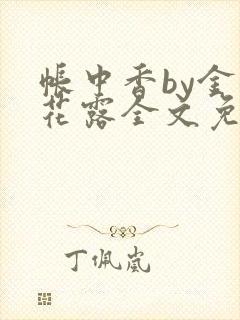 帐中香by金
花露全文免
丁佩岚